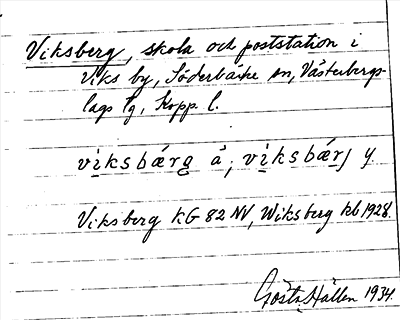 Viksberg, skola och poststation i
Viks by, Söderbärke sn, Västerbergs-
lags tg, Kopp. l.
viksbærg å, viksbærj y.
Viksberg KG 82 NV, Wiksberg kb 1928.
Gösta Hallen 1934.